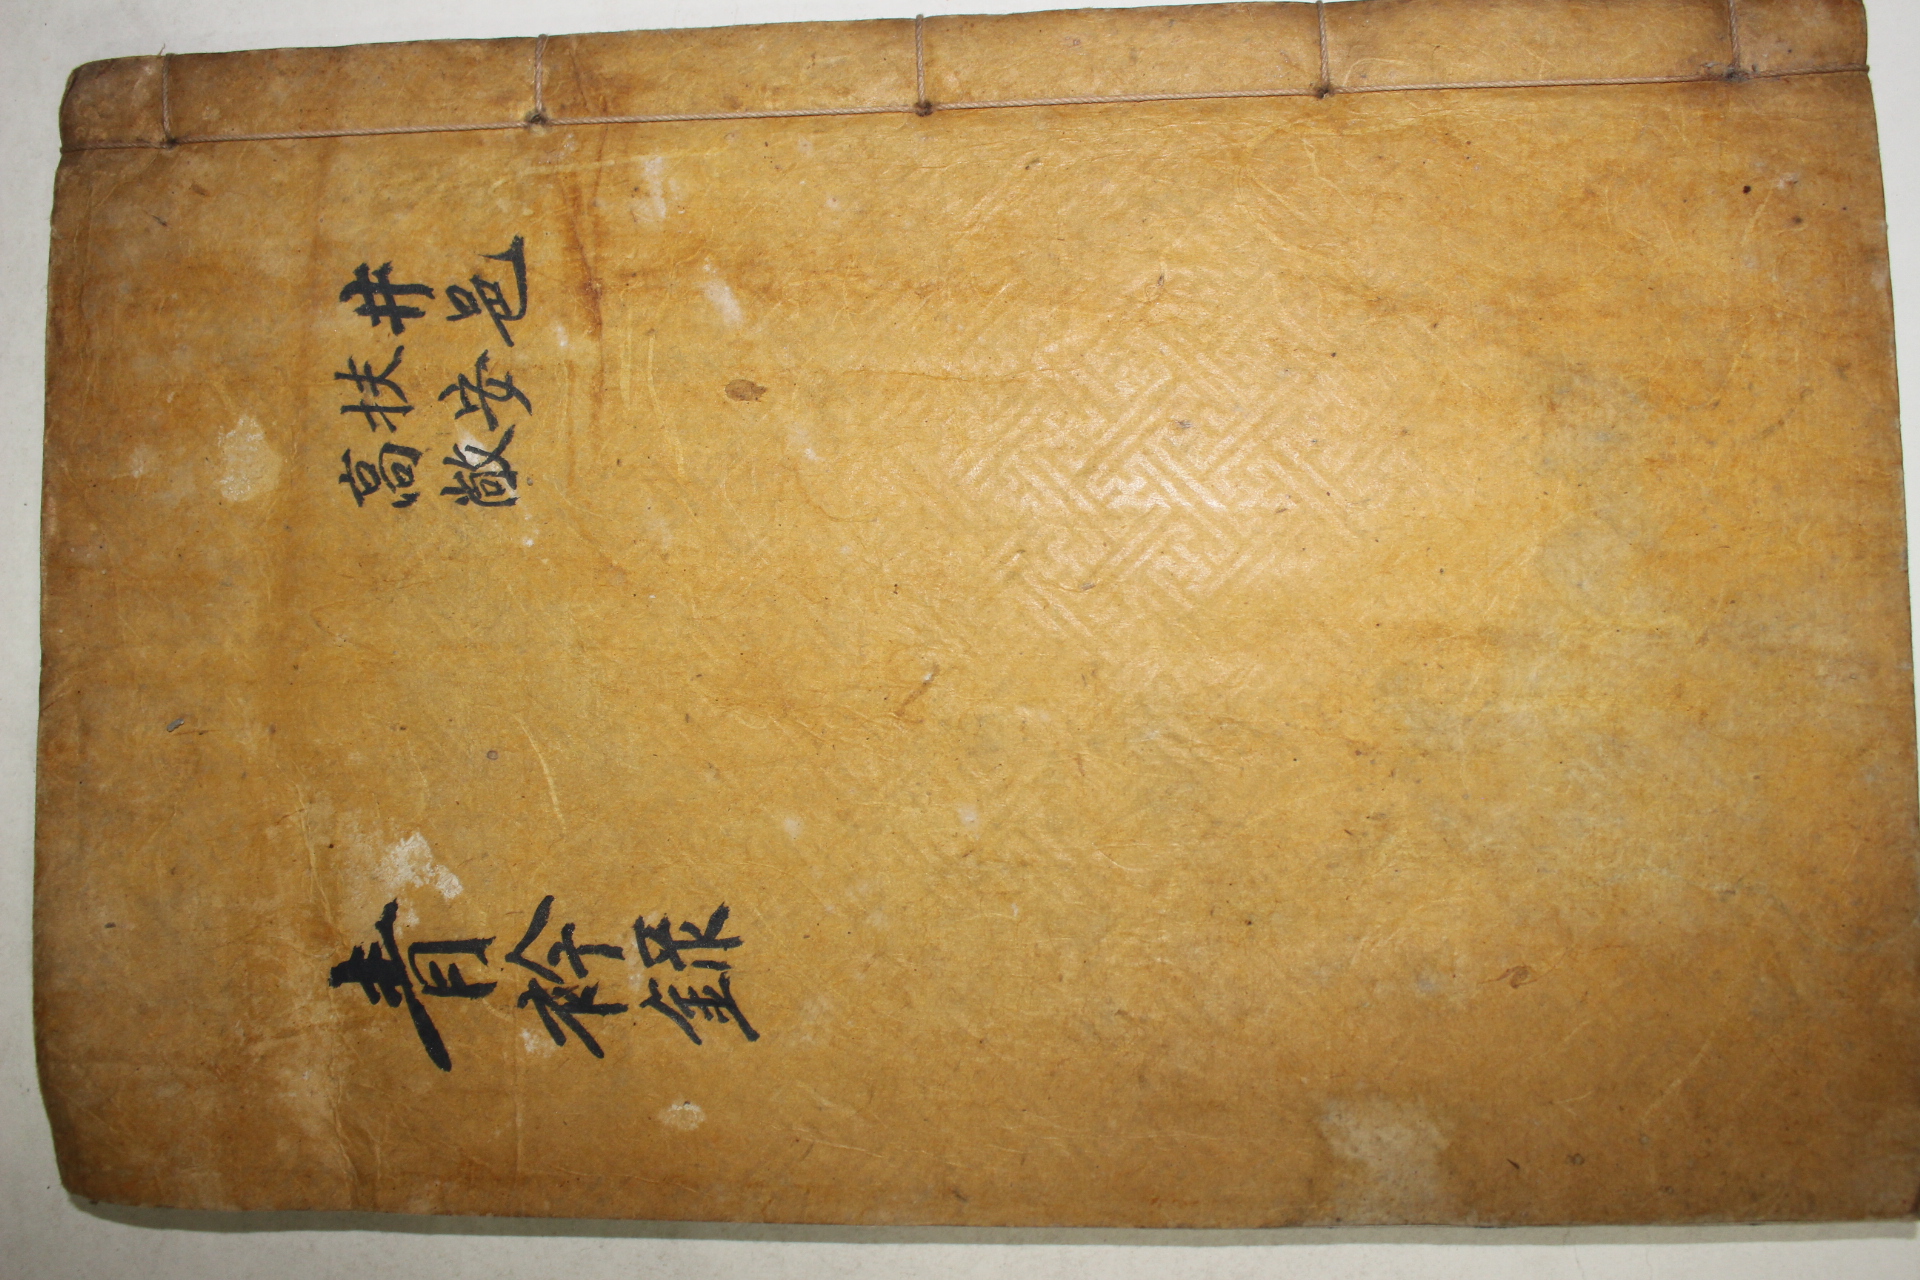 井邑
扶安
高敞
青衿錄